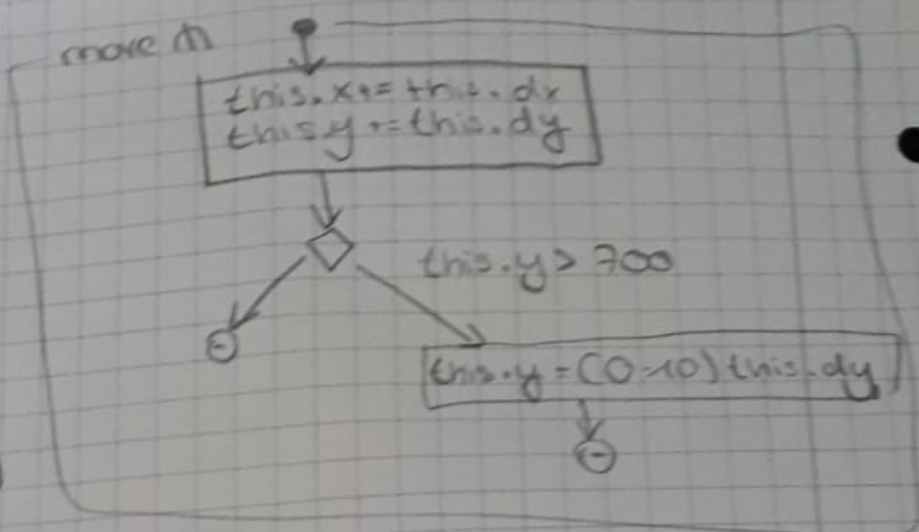 move ()
this.x+= this.dx
this.y += this.dy
this.y > 700
this.y = (0-10) this.dy